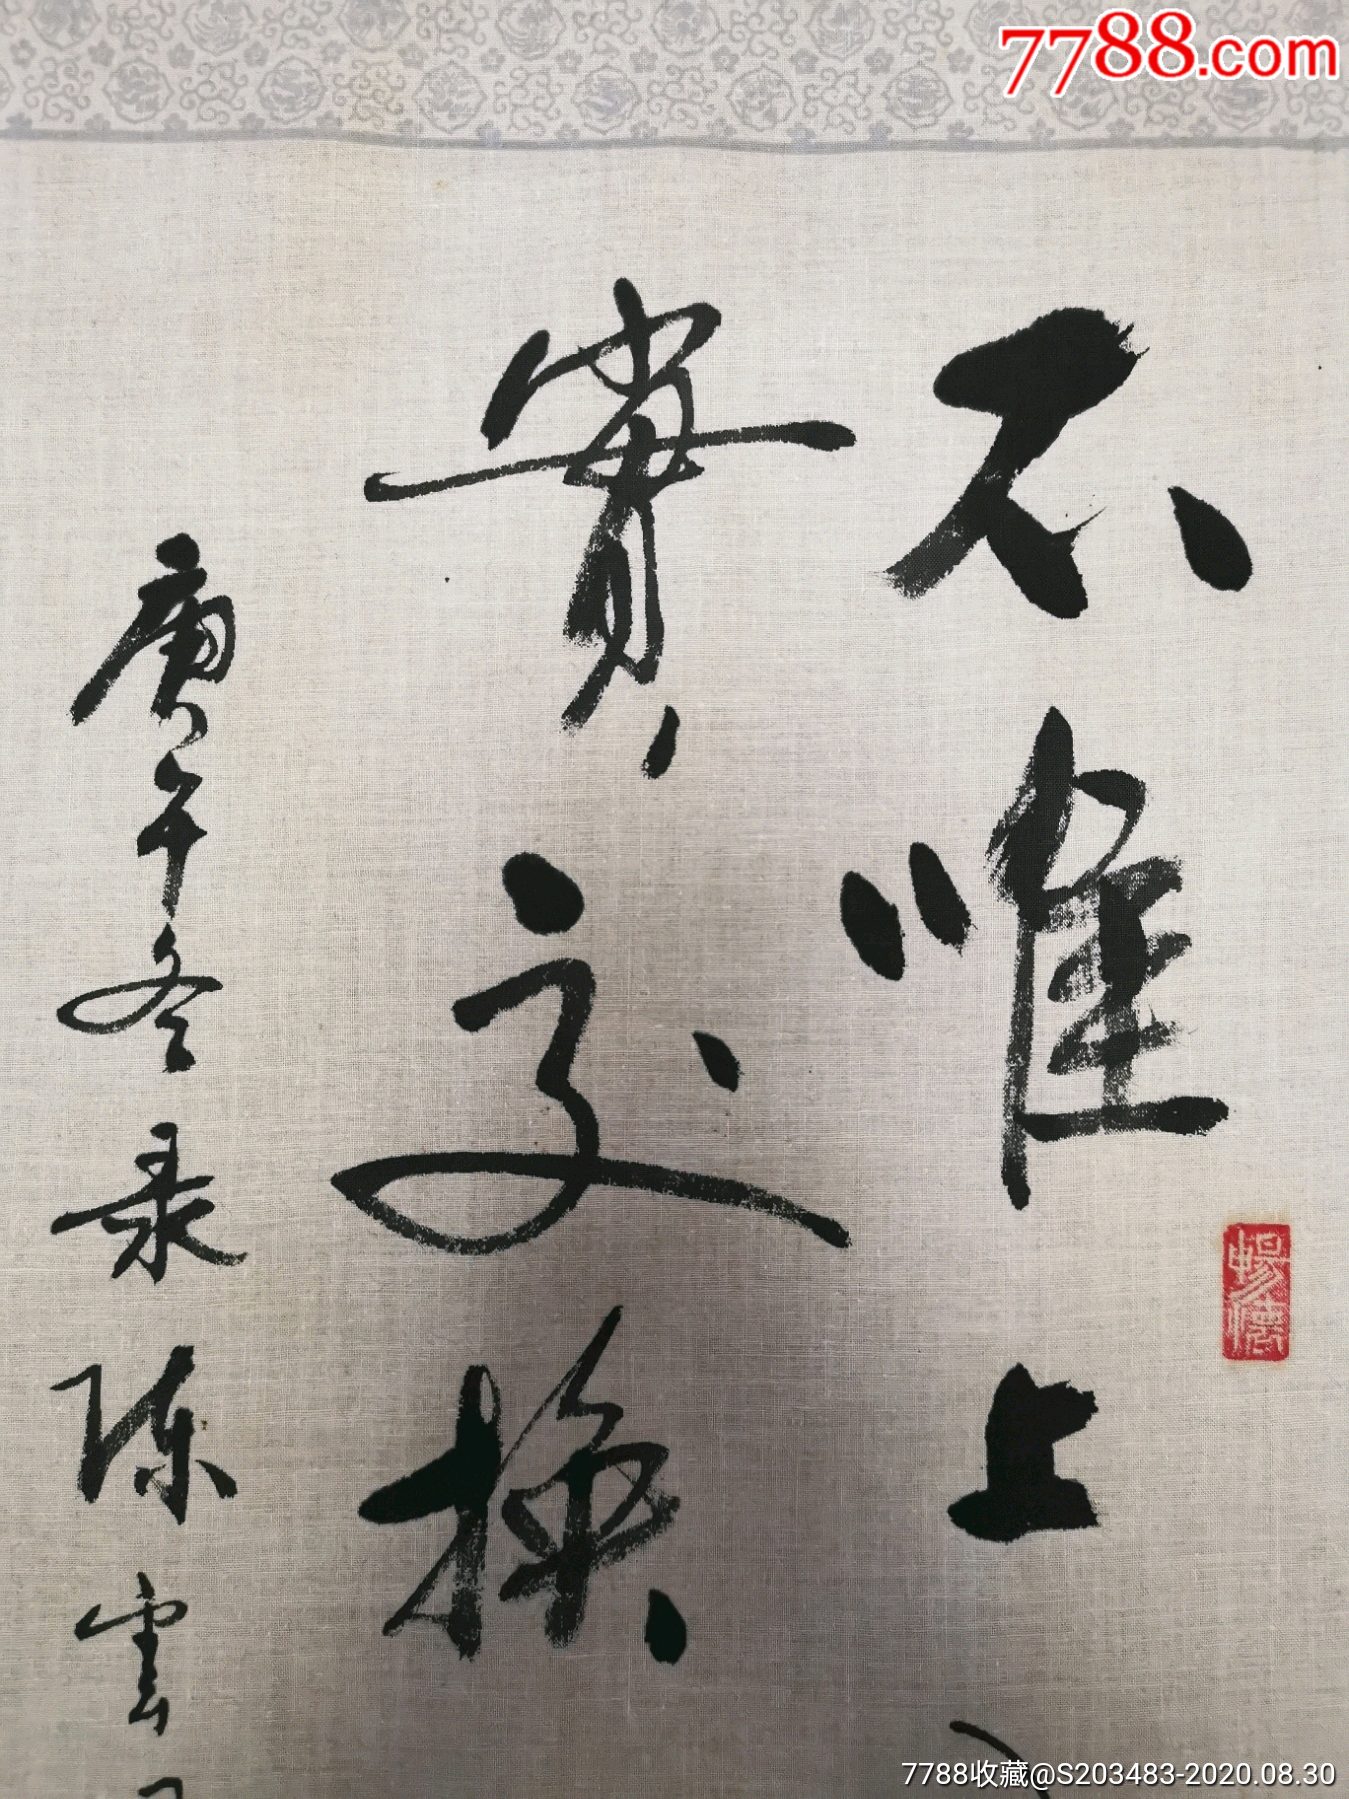 7788.com
不惟上
實交換
庚午冬录陈雲
暢懷
7788收藏@S203483-2020.08.30